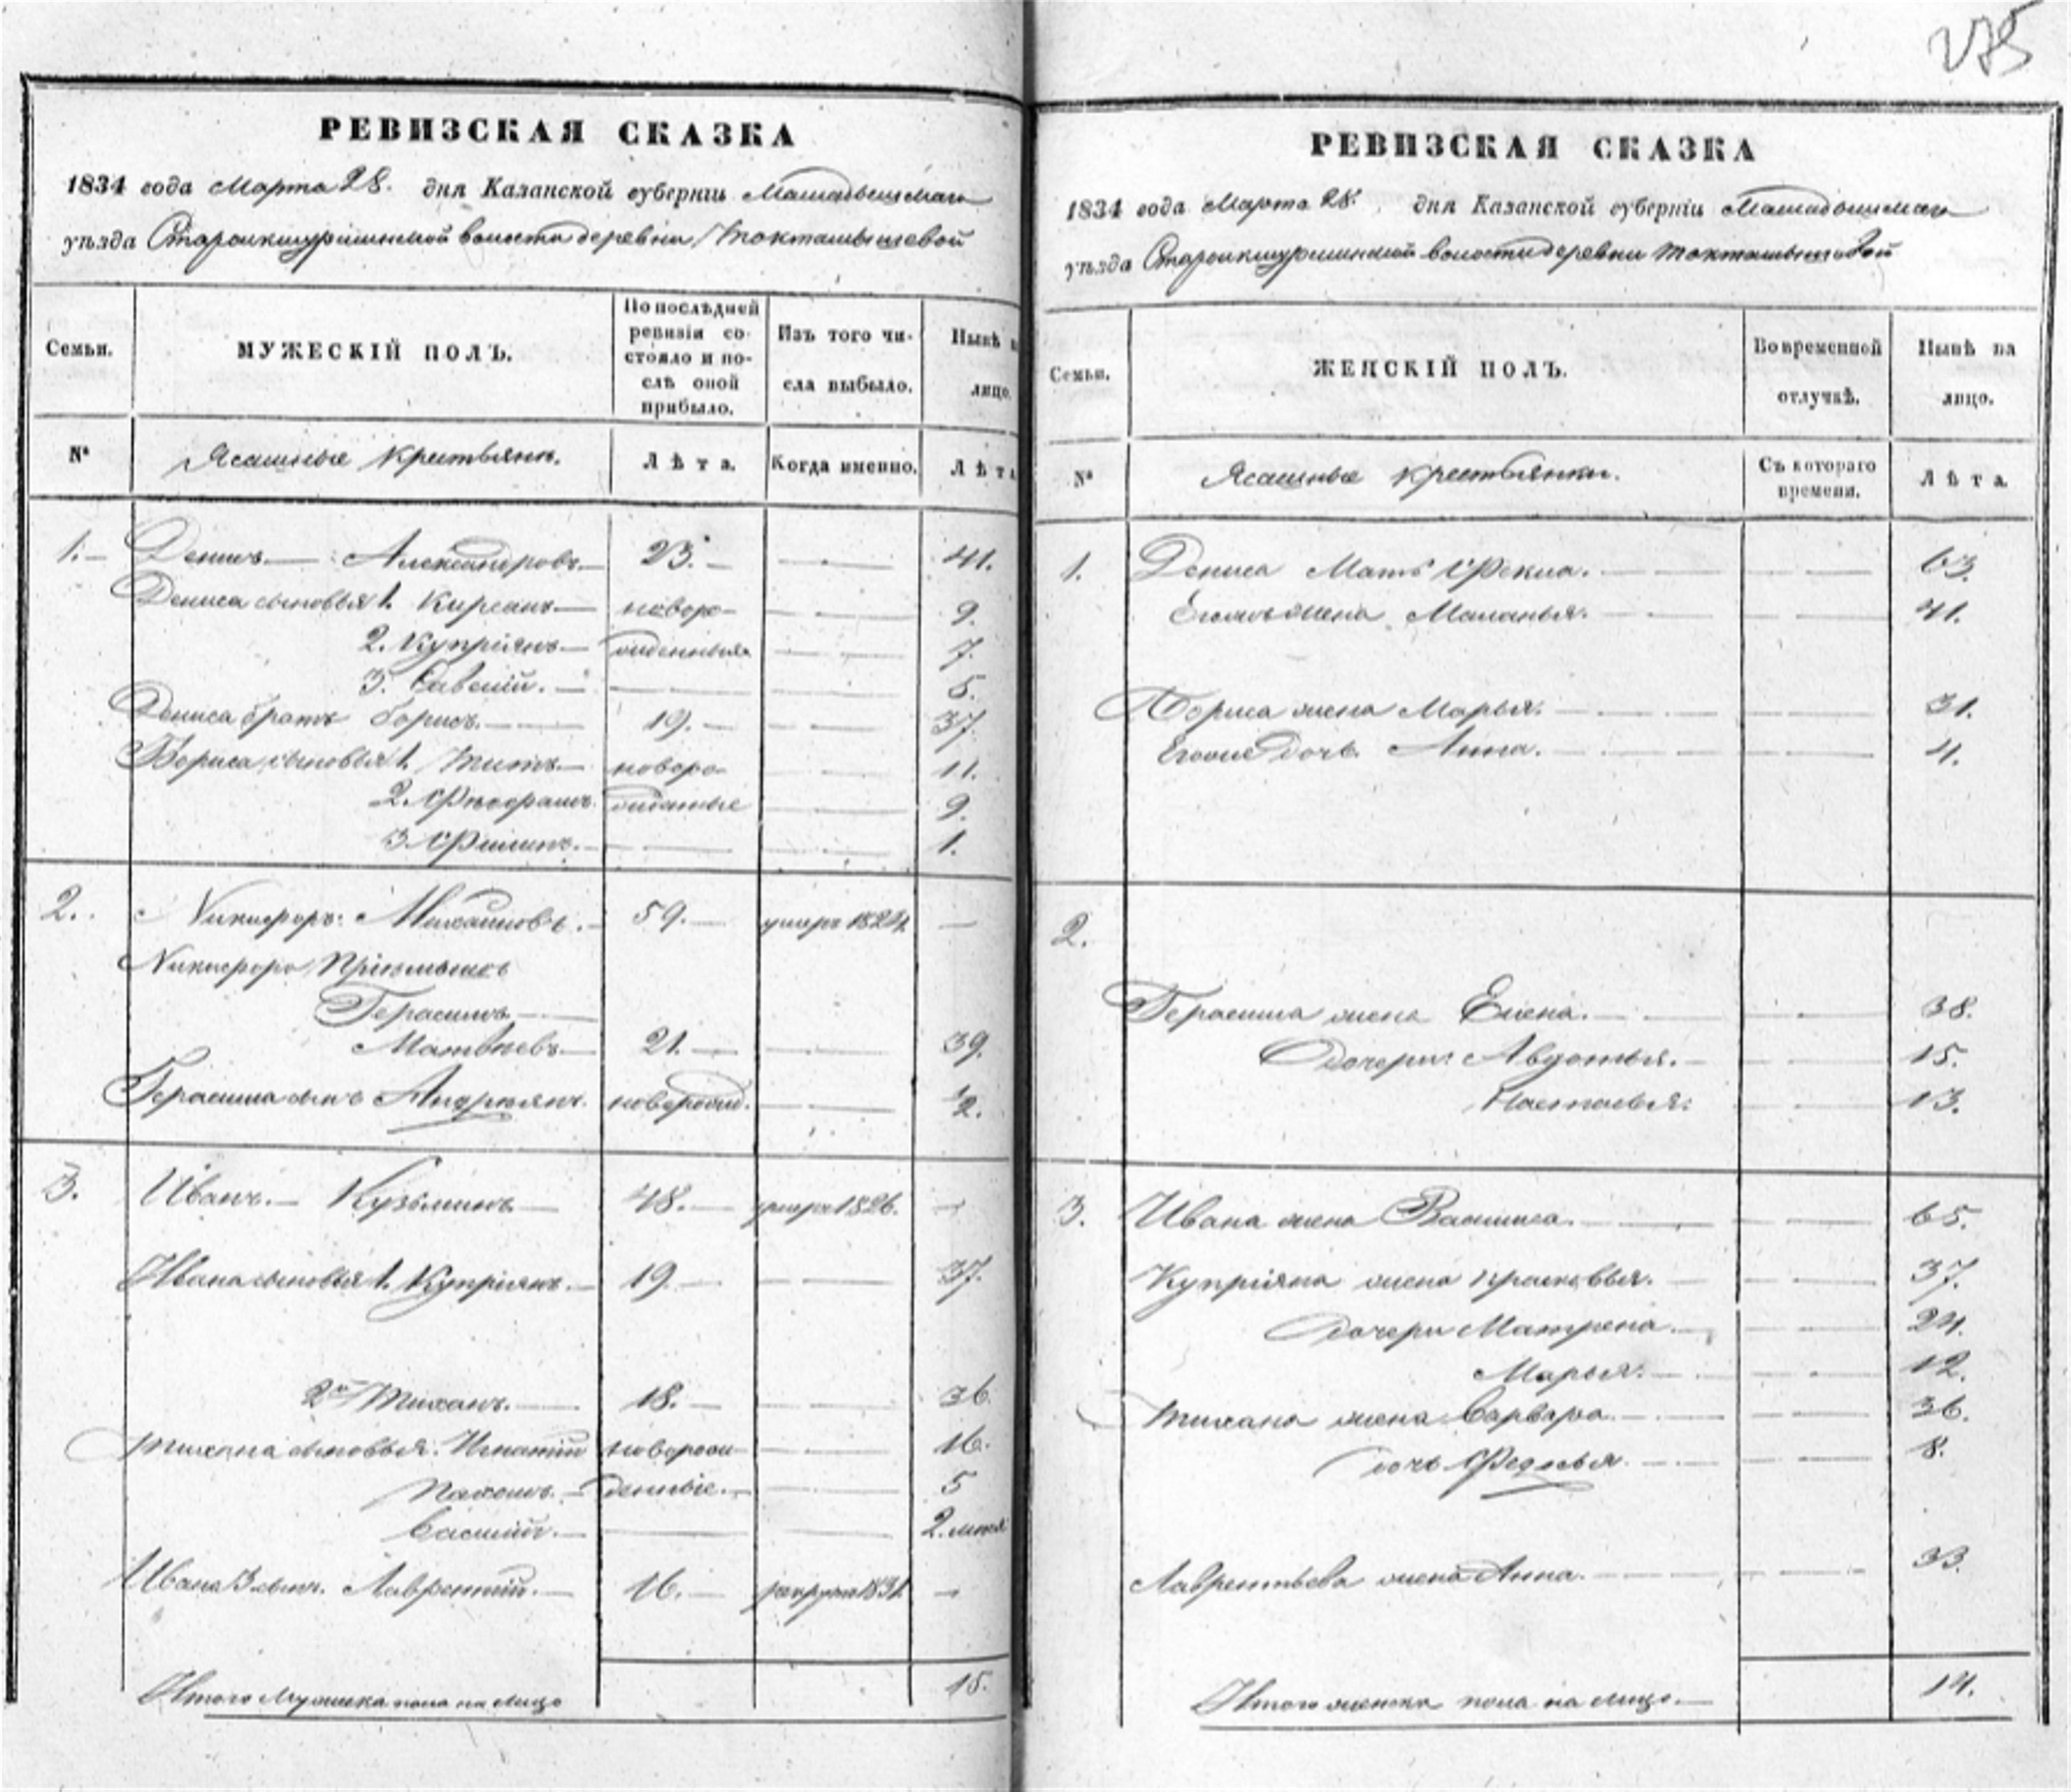 275
РЕВИЗСКАЯ СКАЗКА
1834 года Марта 28. дня Казанской губерніи Мамадышскаго
уѣзда волости деревни Токташышевой
Семьи.
МУЖЕСКІЙ ПОЛЪ.
По послѣдней
ревизіи со-
стояло и по-
слѣ оной
прибыло.
Изъ того чи-
сла выбыло.
Нынѣ н
лицо.
№
Ясашные Крестьяне.
Лѣта.
Когда именно.
Лѣта
1. Денисъ Александровъ 23. 41.
Дениса сыновья 1. Кирсанъ новоро- 9.
2. Купріянъ жденныя 7.
3. Савелій. 5.
Дениса братъ Борисъ. 19. 37.
Бориса сыновья 1. Титъ новоро- 11.
2. жденные 9.
3 Филипъ. 1.
2. Никифоръ Михайловъ. 59. умеръ 1824.
Никифора Пріемышъ
Герасимъ
Матвѣевъ 21. 39.
Герасима сынъ Андреянъ новорожд. 1/2.
3. Иванъ. Кузьминъ 48. умеръ 1826.
Ивана сыновья 1. Купріянъ. 19. 37.
2й Тиханъ. 18. 36
Тихана сыновья. Игнатій новорож 16.
Пахомъ. денные. 5
Василій. 2. мѣся
Ивана 3 сынъ. Лаврентій. 16. рекрутъ 1831.
Итого Мужеска пола на лицо 15.
РЕВИЗСКАЯ СКАЗКА
1834 года Марта 28. дня Казанской губерніи Мамадышскаго
уѣзда волости деревни Токташышевой
Семьи.
ЖЕНСКІЙ ПОЛЪ.
Во временной
отлучкѣ.
Нынѣ на
лицо.
№
Ясашные крестьянки.
Съ котораго
времени.
Лѣта
1. Дениса Мать Фекла. 63.
Егожъ жена Маланья. 41.
Бориса жена Марья. 31.
Егоже дочь Анна. 4.
2.
Герасима жена Елена. 38.
дочери: Авдотья. 15.
Настасья: 13.
3. Ивана жена Василиса. 65.
Купріяна жена Прасковья. 37.
дочери Матрена. 24.
Марья. 12.
Тихана жена Варвара 36.
дочь Федосья 8.
Лаврентьева жена Анна. 33.
Итого женска пола на лицо. 14.